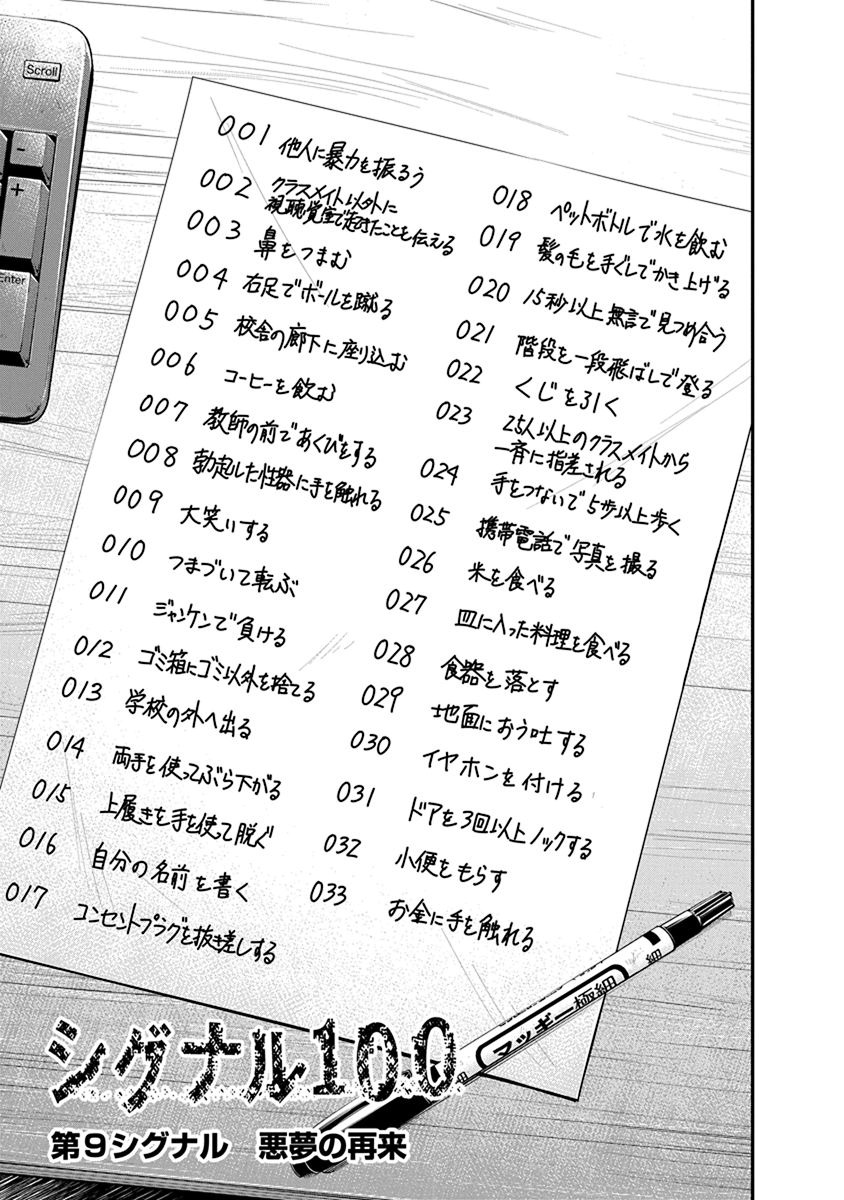 Scroll
-
+
Enter
001 他人に暴力を振るう
002 クラスメイト以外に
視聴覚室で起きたことを伝える
003 鼻をつまむ
004 右足でボールを蹴る
005 校舎の廊下に座り込む
006 コーヒーを飲む
007 教師の前であくびをする
008 勃起した性器に手を触れる
009 大笑いする
010 つまづいて転ぶ
011 ジャンケンで負ける
012 ゴミ箱にゴミ以外を捨てる
013 学校の外へ出る
014 両手を使ってぶら下がる
015 上履きを手を使って脱ぐ
016 自分の名前を書く
017 コンセントプラグを抜き差しする
018 ペットボトルで水を飲む
019 髪の毛を手ぐしでかき上げる
020 15秒以上無言で見つめ合う
021 階段を一段飛ばしで登る
022 くじを引く
023 25人以上のクラスメイトから
一斉に指差される
024 手をつないで5歩以上歩く
025 携帯電話で写真を撮る
026 米を食べる
027 皿に入った料理を食べる
028 食器を落とす
029 地面におう吐する
030 イヤホンを付ける
031 ドアを3回以上ノックする
032 小便をもらす
033 お金に手を触れる
マッギー極細
細
シグナル100
第9シグナル 悪夢の再来